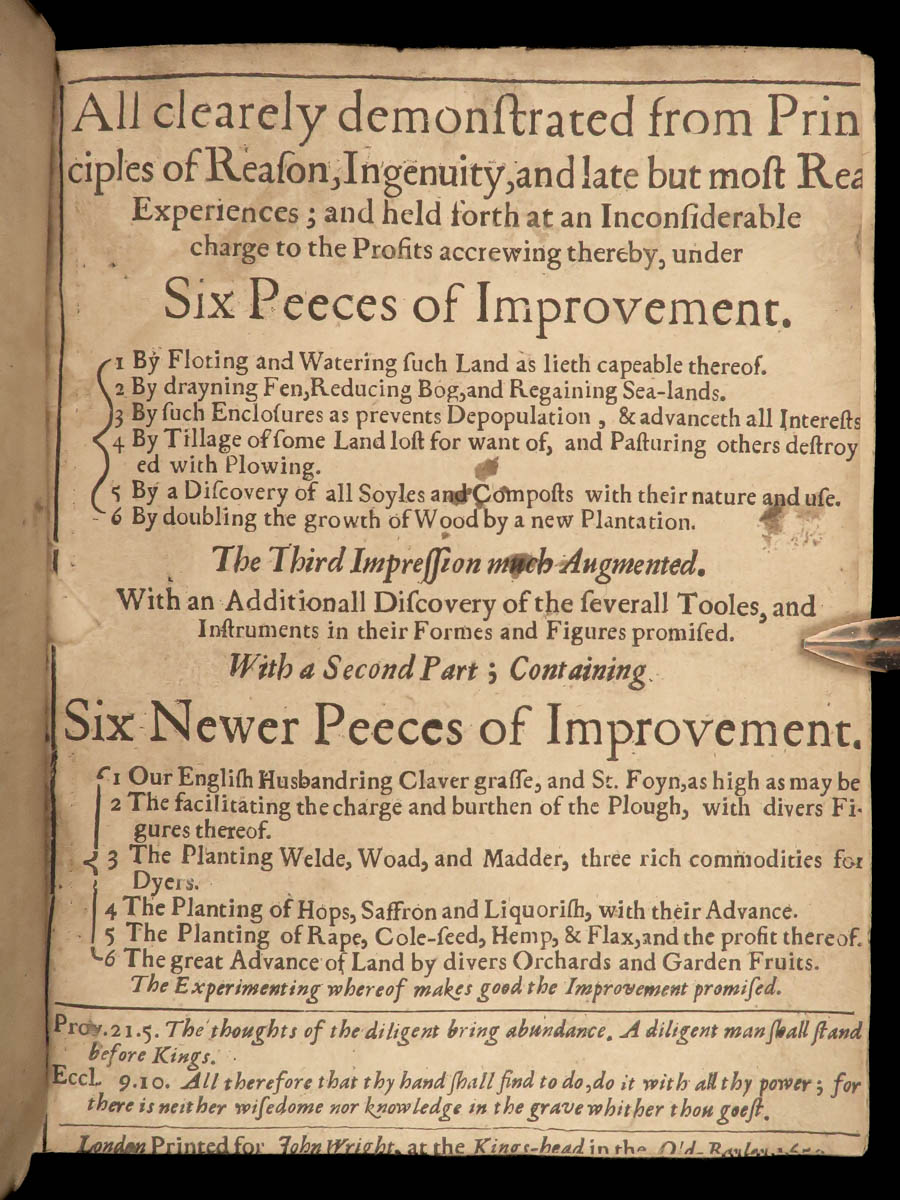 All clearely demonſtrated from Prin
ciples of Reaſon, Ingenuity, and late but moſt Rea
Experiences ; and held forth at an Inconſiderable
charge to the Profits accrewing thereby, under
Six Peeces of Improvement.
1 By Floting and Watering ſuch Land as lieth capeable thereof.
2 By drayning Fen, Reducing Bog, and Regaining Sea-lands.
3 By ſuch Encloſures as prevents Depopulation , & advanceth all Intereſts
4 By Tillage of ſome Land loſt for want of, and Paſturing others deſtroy
ed with Plowing.
5 By a Diſcovery of all Soyles and Compoſts with their nature and uſe.
6 By doubling the growth of Wood by a new Plantation.
The Third Impreſſion much Augmented.
With an Additionall Diſcovery of the ſeverall Tooles, and
Inſtruments in their Formes and Figures promiſed.
With a Second Part ; Containing
Six Newer Peeces of Improvement.
1 Our Engliſh Husbandring Claver graſſe, and St. Foyn, as high as may be
2 The facilitating the charge and burthen of the Plough, with divers Fi-
gures thereof.
3 The Planting Welde, Woad, and Madder, three rich commodities for
Dyers.
4 The Planting of Hops, Saffron and Liquoriſh, with their Advance.
5 The Planting of Rape, Cole-ſeed, Hemp, & Flax, and the profit thereof.
6 The great Advance of Land by divers Orchards and Garden Fruits.
The Experimenting whereof makes good the Improvement promiſed.
Prov. 21. 5. The thoughts of the diligent bring abundance. A diligent man ſhall ſtand
before Kings.
Eccl. 9. 10. All therefore that thy hand ſhall find to do, do it with all thy power ; for
there is neither wiſedome nor knowledge in the grave whither thou goeſt.
London Printed for John Wright, at the Kings-head in the Old-Bayley.